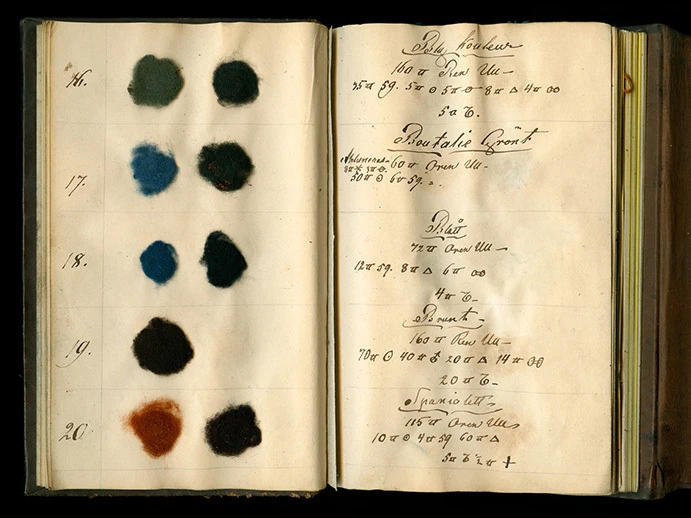 16.
17.
18.
19.
20
Blå Kouleur
160 ℔ Ren Ull –
75 ℔ 59. 5 ℔ ⊙ 5 ℔ ⊖ 8 ℔ △ 4 ℔ ∞
5 ℔ ♉.
Boutalie Grönt
60 ℔ Oren Ull –
50 ℔ ⊙ 6 ℔ 59.
Blått
72 ℔ Oren Ull –
12 ℔ 59. 8 ℔ △ 6 ℔ ∞
4 ℔ ♉ –
Brunt –
160 ℔ Ren Ull –
70 ℔ ⊙ 40 ℔ ♁ 20 ℔ △ 14 ℔ ∞
20 ℔ ♉ –
Spaniolett
115 ℔ Oren Ull
10 ℔ ⊙ 4 ℔ 59 60 ℔ △
5 ℔ ♉ ½ ℔ +